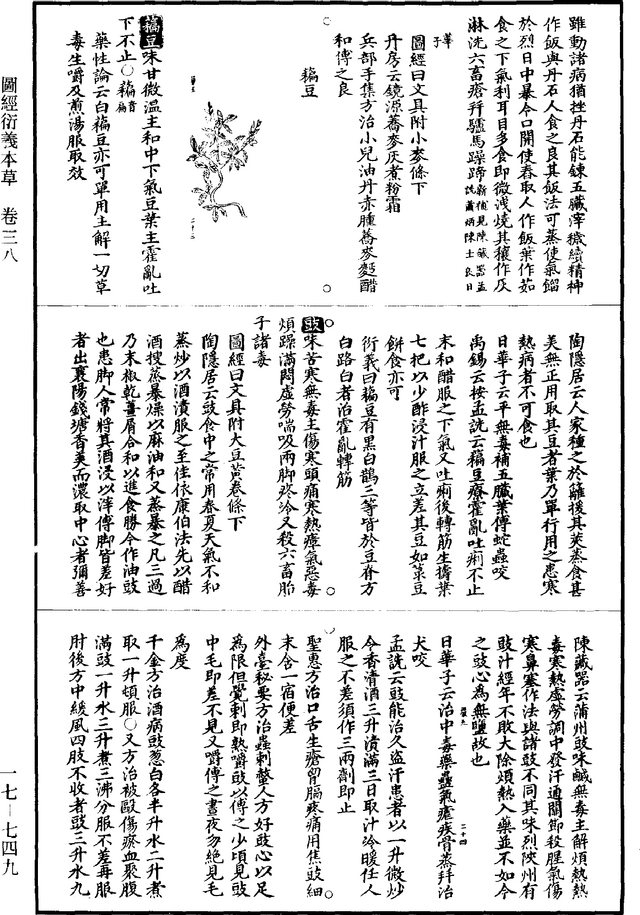 雖動諸病猶挫丹石能鍊五臟滓穢續精神
作飯與丹石人食之良其飯法可蒸使氣餾
於烈日中暴令口開使舂取人作飯葉作茹
食之下氣利耳目多食即微洩燒其穰作灰
淋洗六畜瘡幷驢馬躁蹄新補見陳藏器孟詵蕭炳陳士良日華子
圖經曰文具附小麥條下
丹房云鏡源蕎麥灰煮粉霜
兵部手集方治小兒油丹赤腫蕎麥麪醋
和傅之良
藊豆
藊豆味甘微溫主和中下氣豆葉主霍亂吐
下不止○藊音扁
藥性論云白藊豆亦可單用主解一切草
毒生嚼及煎湯服取效
陶隱居云人家種之於籬後其莢蒸食甚
美無正用取其豆者葉乃單行用之患寒
熱病者不可食也
日華子云平無毒補五臟葉傅蛇蟲咬
禹錫云按孟詵云藊豆療霍亂吐痢不止
末和醋服之下氣又吐痢後轉筋生擣葉
七把以少酢浸汁服之立差其豆如菉豆
餅食亦可
衍義曰藊豆有黑白鵲三等皆於豆脊方
白路白者治霍亂轉筋
豉味苦寒無毒主傷寒頭痛寒熱瘴氣惡毒
煩躁滿悶虛勞喘吸兩脚疼冷又殺六畜胎
子諸毒
圖經曰文具附大豆黃卷條下
陶隱居云豉食中之常用春夏天氣不和
蒸炒以酒漬服之至佳依康伯法先以醋
酒搜蒸暴燥以麻油和又蒸暴之凡三過
乃末椒乾薑屑合和以進食勝今作油豉
也患脚人常將其酒浸以滓傅脚皆差好
者出襄陽錢塘香美而濃取中心者彌善
陳藏器云蒲州豉味鹹無毒主解煩熱熱
毒寒熱虛勞調中發汗通關節殺腥氣傷
寒鼻塞作法與諸豉不同其味烈陝州有
豉汁經年不敗大除煩熱入藥並不如今
之豉心為無鹽故也
日華子云治中毒藥蠱氣瘧疾骨蒸幷治
犬咬
孟詵云豉能治久盜汗患者以一升微炒
令香清酒三升漬滿三日取汁冷暖任人
服之不差須作三兩劑即止
聖惠方治口舌生瘡胷膈疼痛用焦豉細
末含一宿便差
外臺秘要方治蟲刺螫人方好豉心以足
為限但覺刺即熱嚼豉以傅之少頃見豉
中毛即差不見又嚼傅之晝夜勿絕見毛
為度
千金方治酒病豉葱白各半升水二升煮
取一升頓服○又方治被毆傷瘀血聚腹
滿豉一升水三升煮三沸分服不差再服
肘後方中緩風四肢不收者豉三升水九
圖經衍義本草 卷三八
一七-七四九